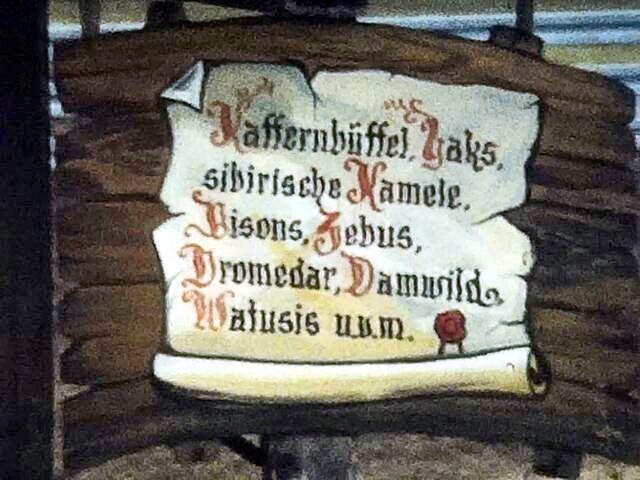 Kaffernbüffel, Yaks,
sibirische Kamele,
Bisons, Zebus,
Dromedar, Damwild,
Watusis u.v.m.